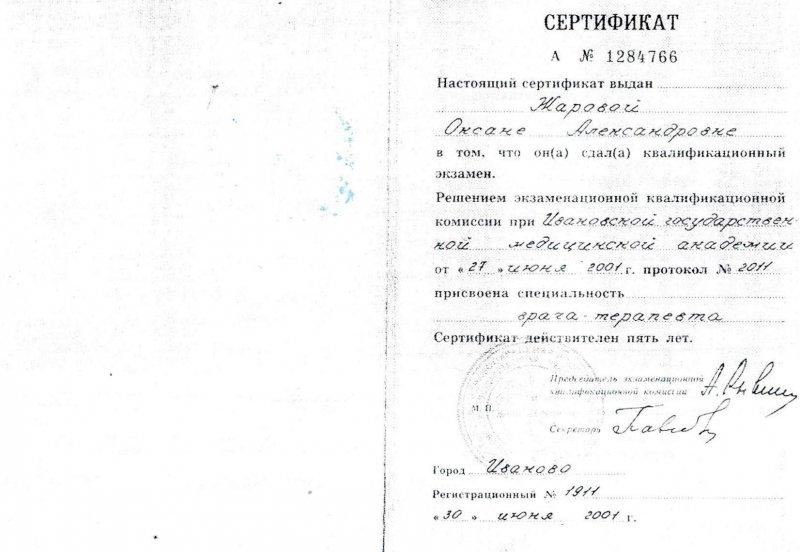 СЕРТИФИКАТ
А № 1284766
Настоящий сертификат выдан
Жаровой
Оксане Александровне
в том, что он(а) сдал(а) квалификационный
экзамен.
Решением экзаменационной квалификационной
комиссии при Ивановской государствен-
ной медицинской академии
от «27» июня 2001 г. протокол № 2011
присвоена специальность
врача-терапевта
Сертификат действителен пять лет.
Председатель экзаменационной
квалификационной комиссии
М. П.
Секретарь
Город Иваново
Регистрационный № 1911
«30» июня 2001 г.